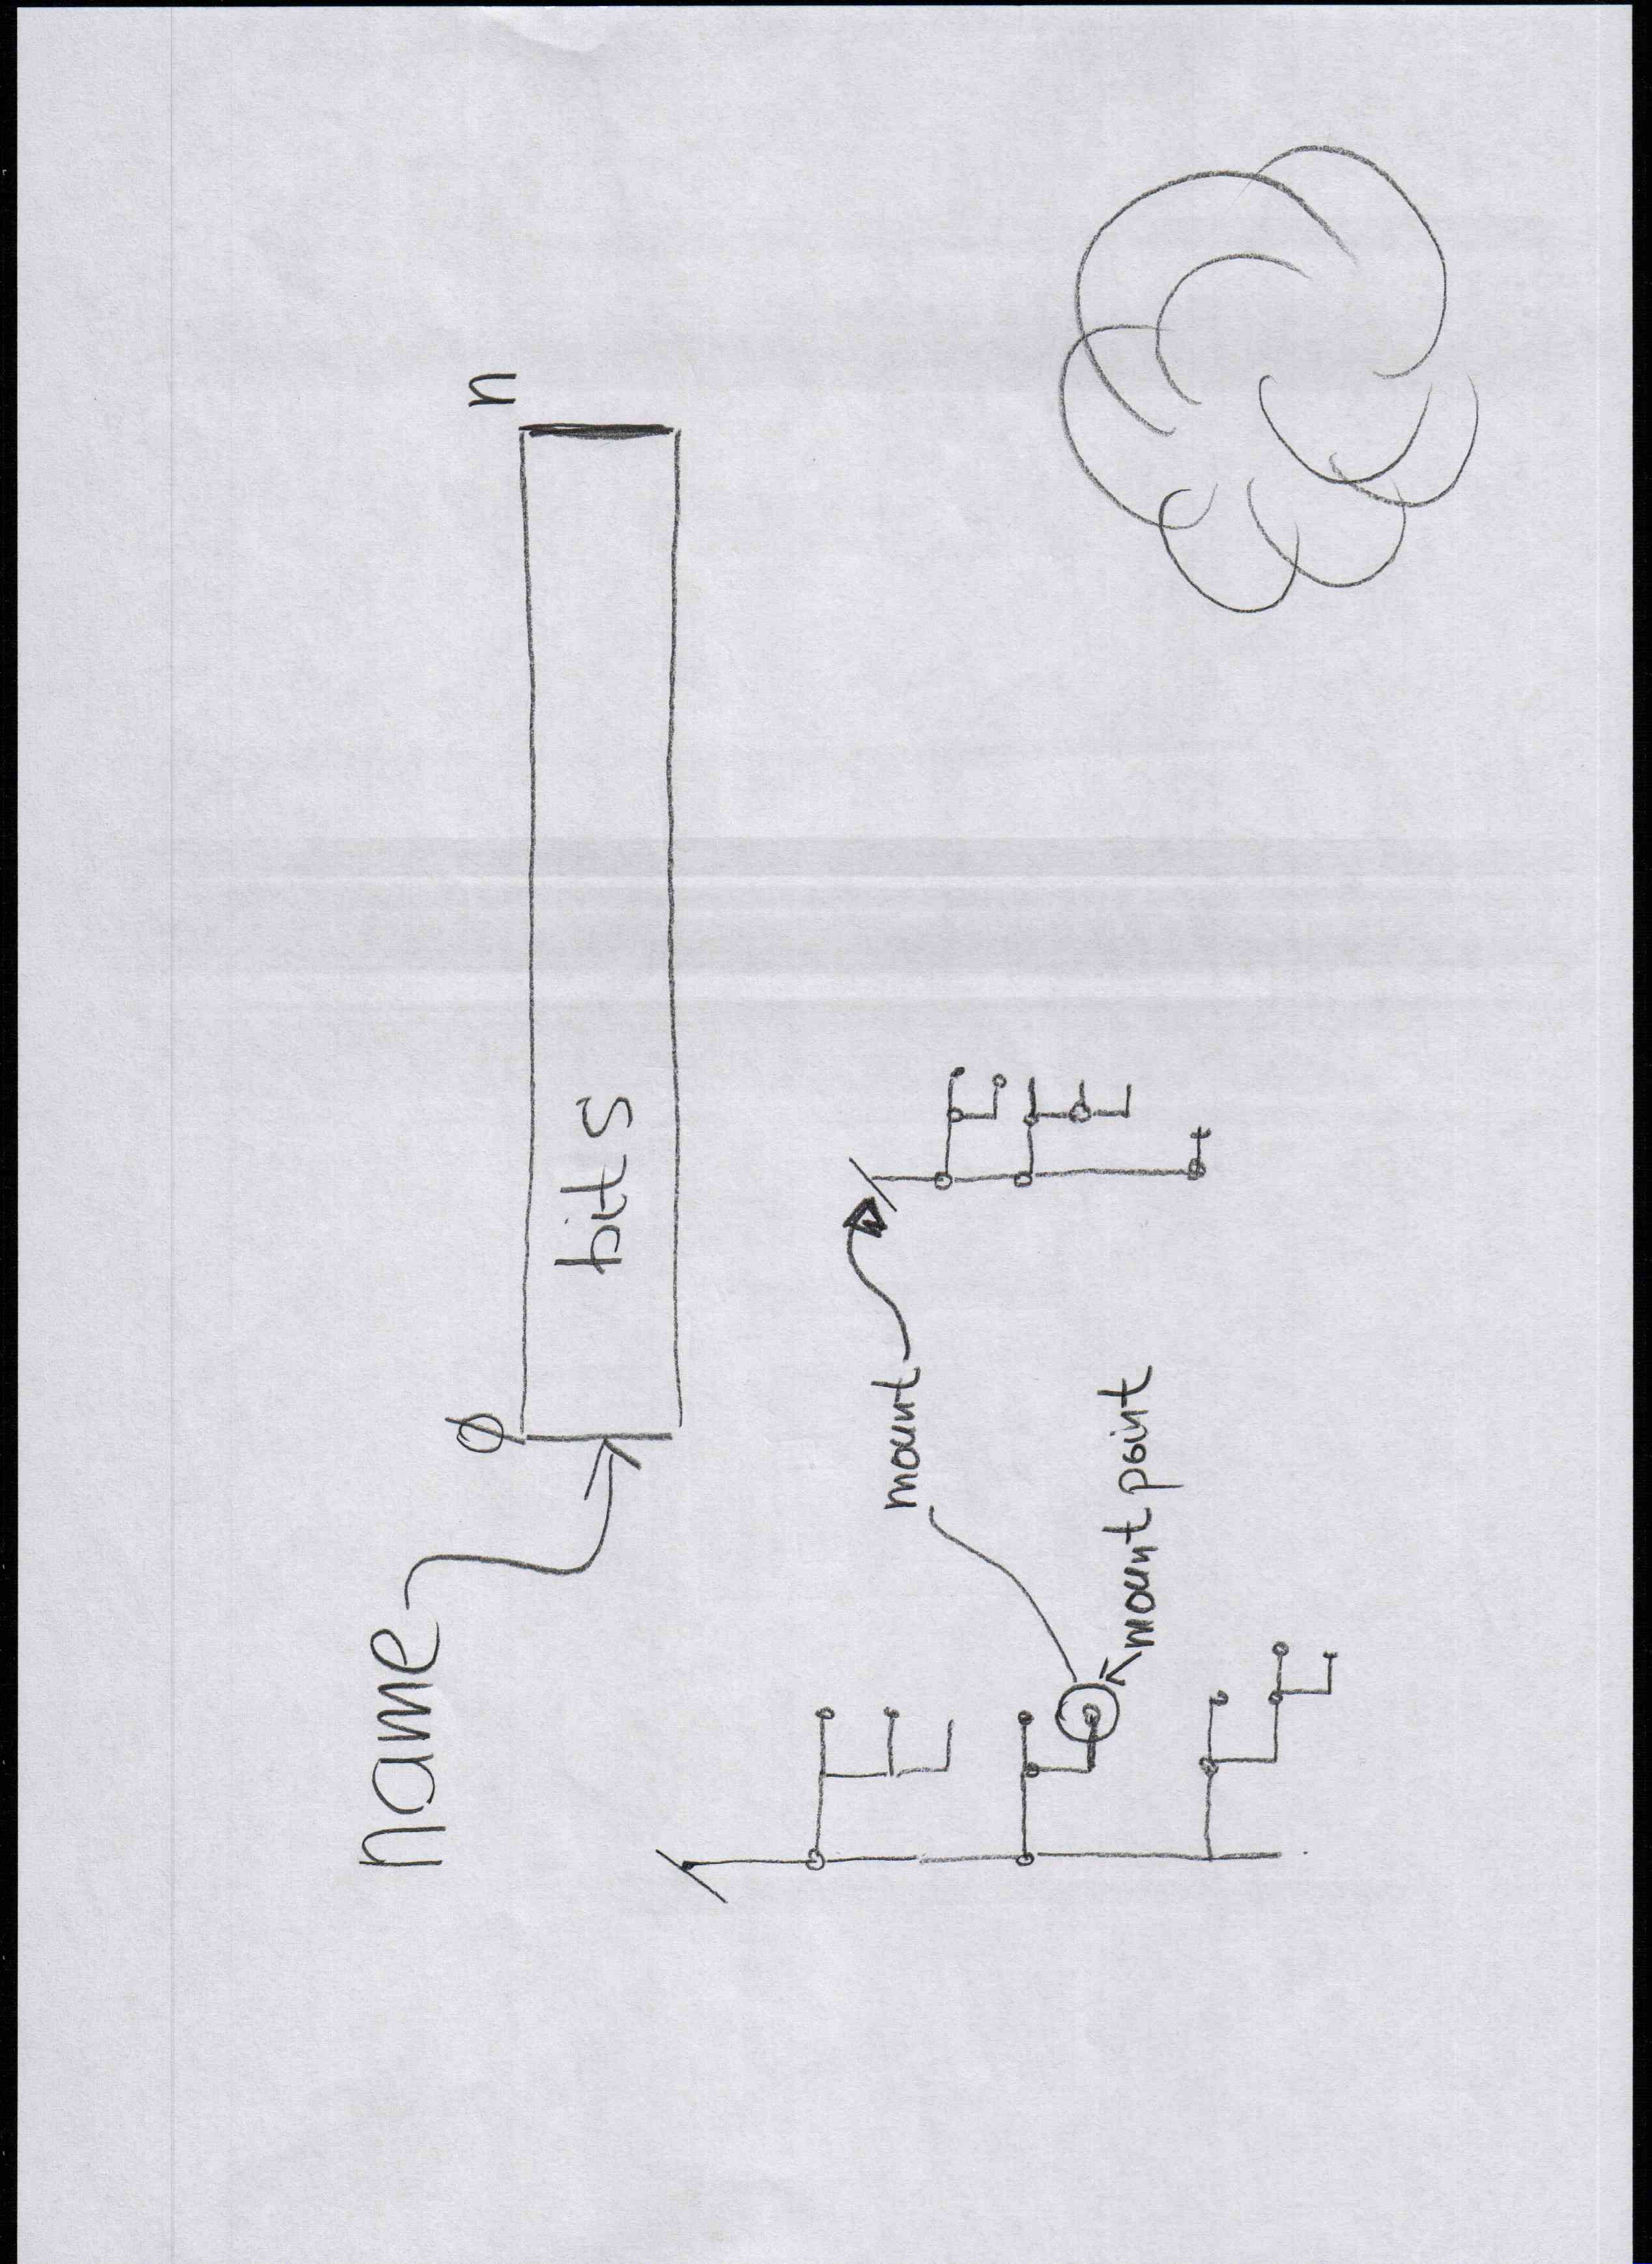 name
Ø n
bits
/
/
mount
mount point